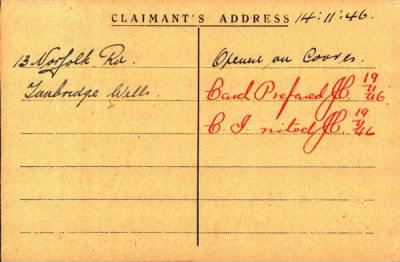 CLAIMANT'S ADDRESS 14.11.46.
13 Norfolk Rd
Tunbridge Wells
Opened on
Card Prepared JC 19/11/46.
C. I noted JC 19/11/46